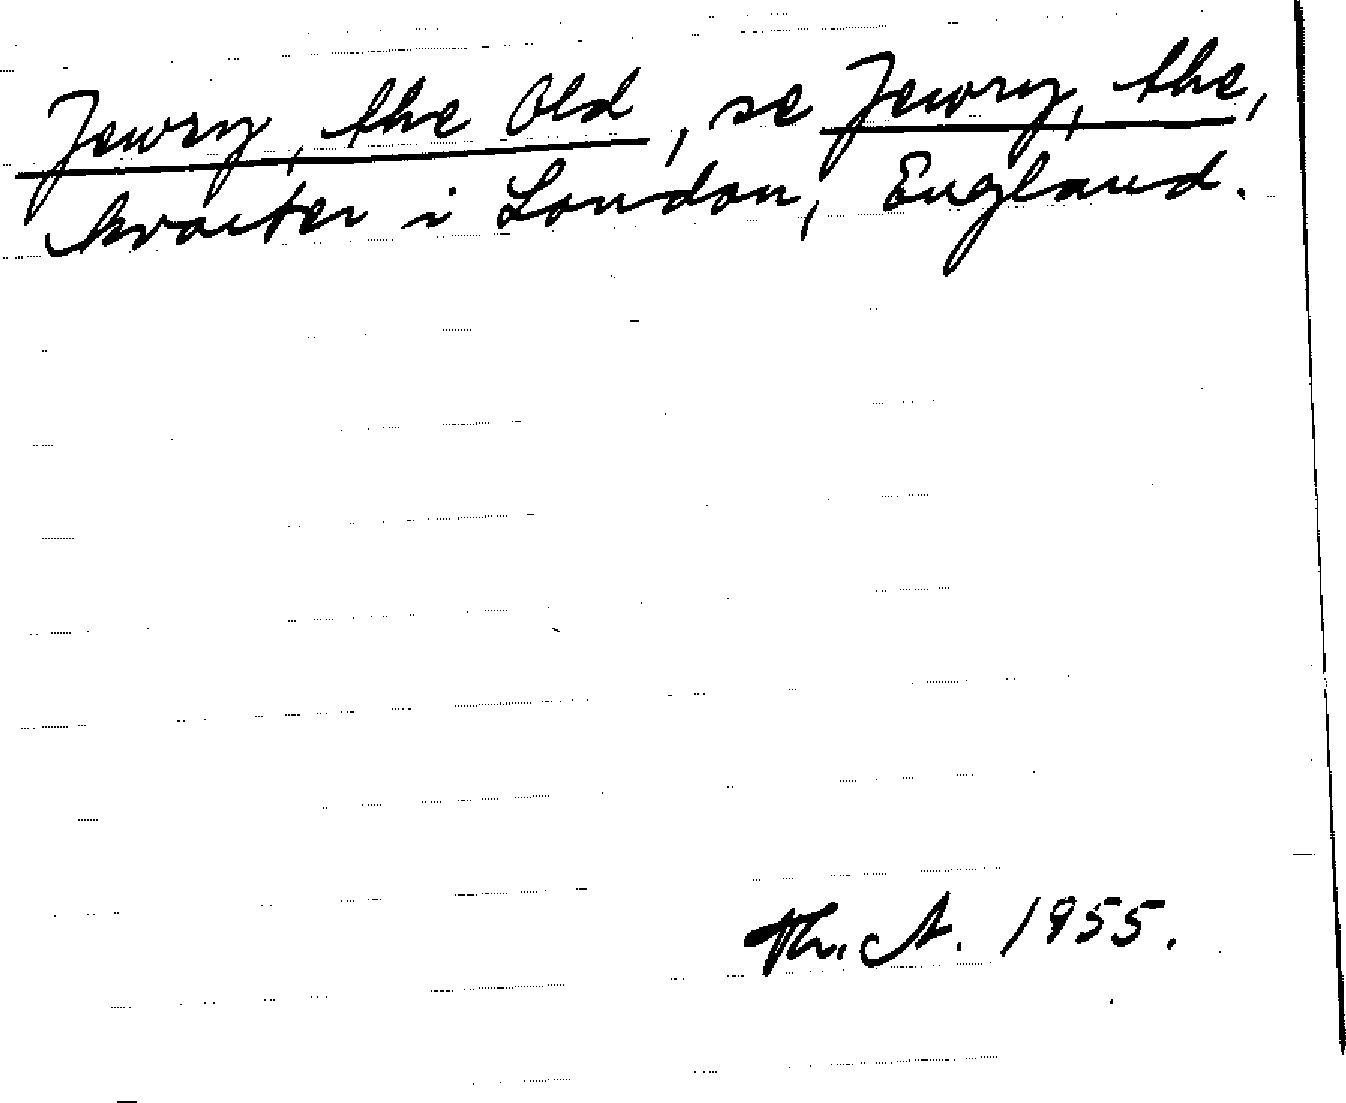 Jewry, the Old, se Jewry, the,
kvarter i London, England.
Th. A. 1955.